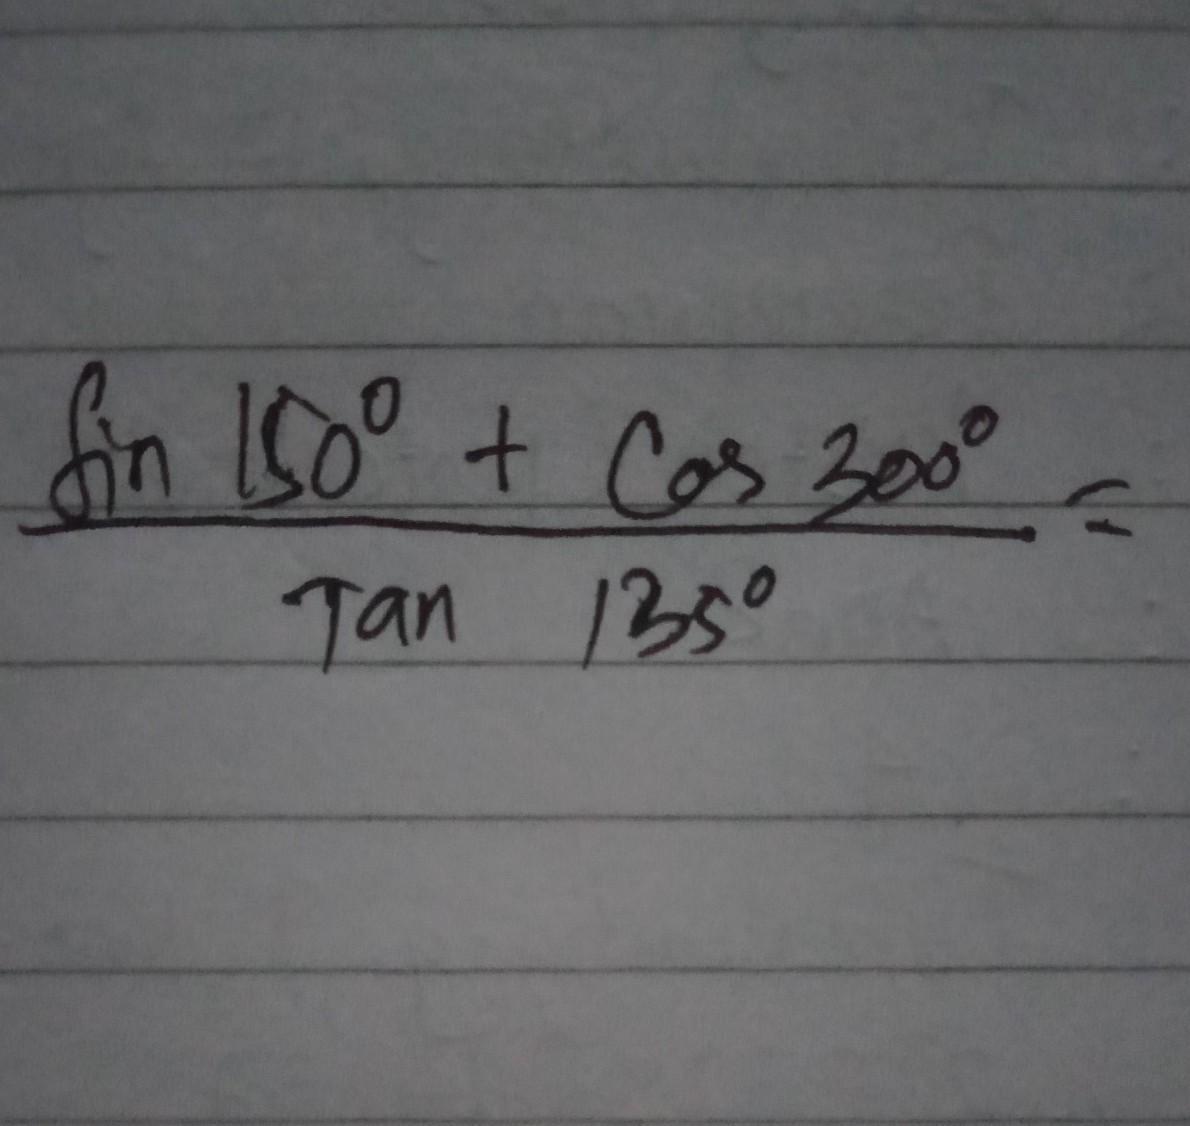 Sin 150° + Cos 300° =
Tan 135°